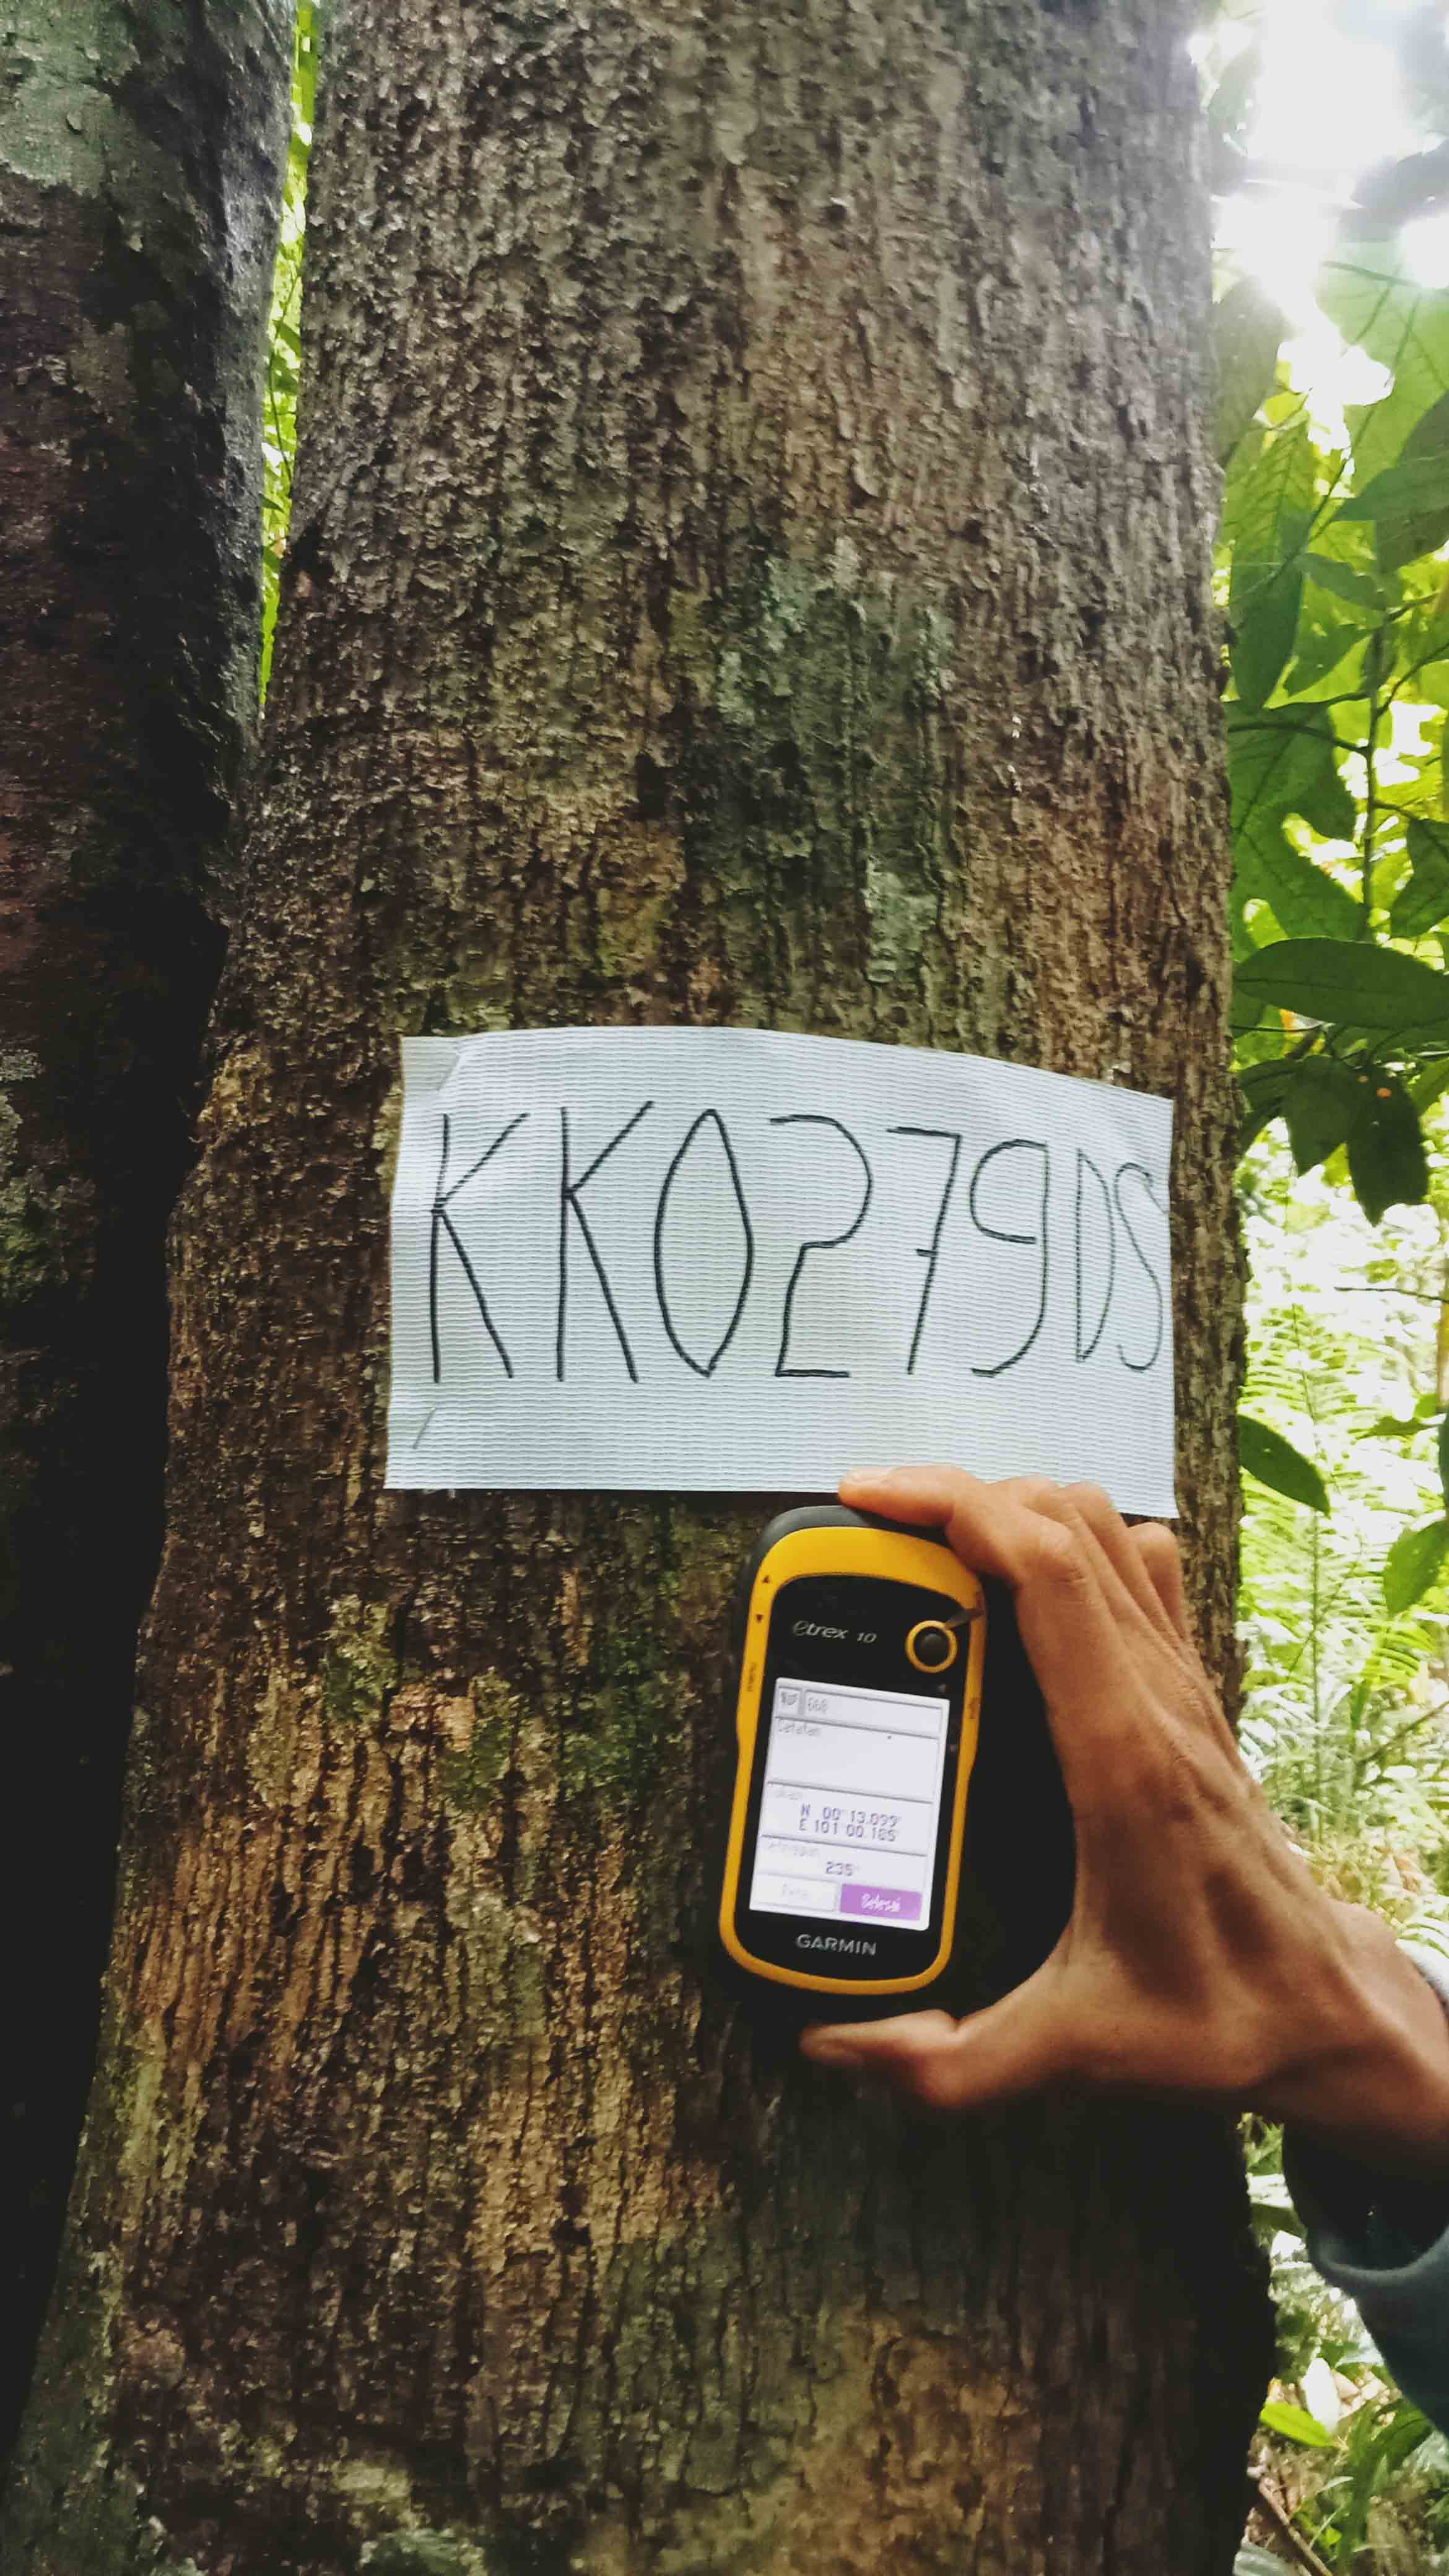 KK0279DS
etrex 10
668
Catatan
Lokasi
N 00°13.099'
E 101°00.185'
Ketinggian
Peta
Selesai
GARMIN